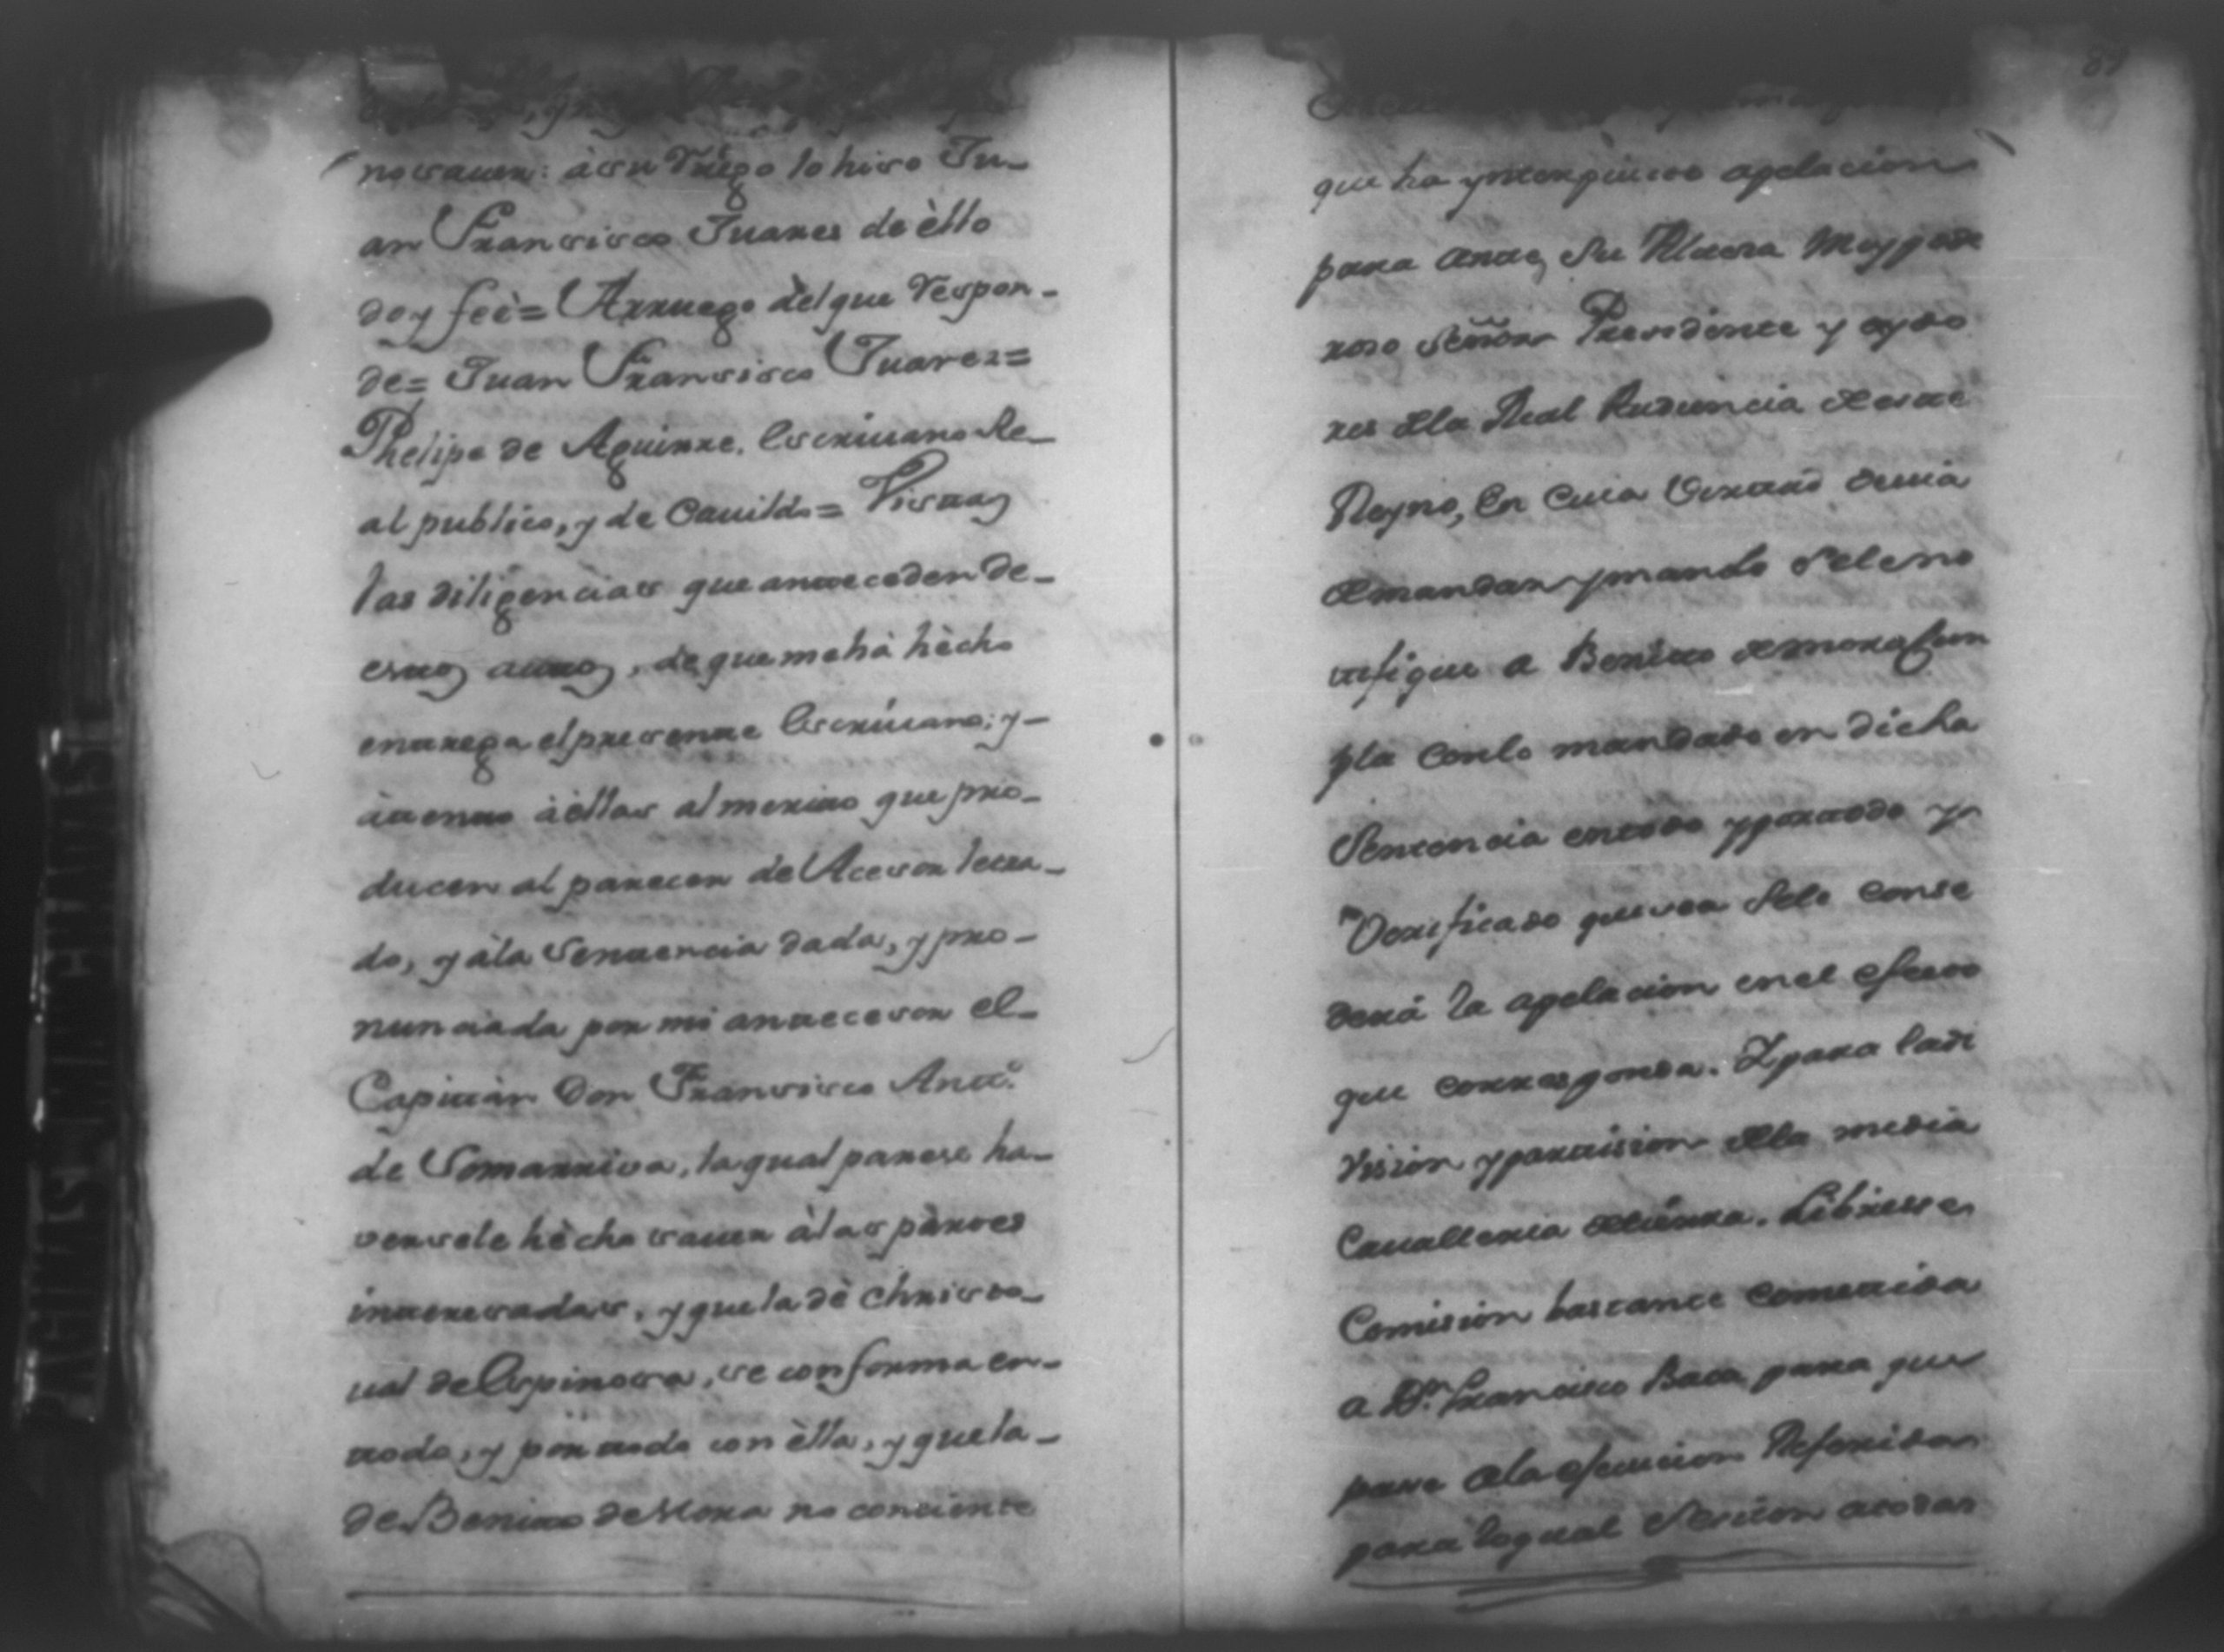 no sauer: à su Ruego lo hiso Ju-
an Fransisco Juares de èllo
doy feè= Arruego dèl que Respon-
de= Juan Fransisco Juarez=
Phelipe de Aguirre. Escriuano Re-
al publico, y de Cauildo= Vistas
las diligencias que anteceden de-
estos autos, de que me hà hècho
entrega el presente Escriuano; y-
àtento à èllas al merito que pro-
ducen al parecer de Acesor letra-
do, y à la Sentencia dada, y pro-
nunciada por mi antecesor el-
Capitàn Don Fransisco Antto.
de Somarriva, la qual parese ha-
versele hècho sauer à las pàrtes
interesadas, y que la dè Christo-
ual de Espinosa, se conforma en-
todo, y pòr todo con èlla, y que la-
de Benito de Mora no conciente
87
que ha ynterpuesto apelacion
para ante Su Altesa Muy pode
roso Señor Presidente y oydo
res dela Real Audiencia deste
Reyno, En Cuia Virtud deuia
demandar y mando Sele no
tifique a Benito demora Cum
pla Conlo mandado en dicha
Sentencia entodo yportodo y
Verificado quesea Sele conse
derá la apelacion enel efecto
que corresponda. Y para ladi
vision yparticion dela media
Caualleria detierra. Librese
Comision bastante Cometida
a Dn. Francisco Baca para que
pase alaefecucion Referida
para loqual Seciten atodas